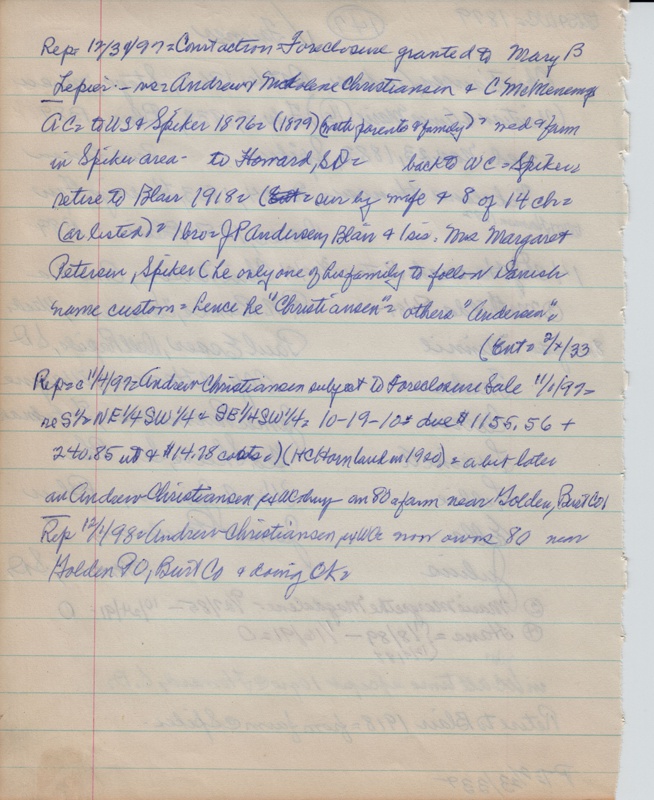 Rep= 12/30/97= Court action= Foreclosure granted to Mary B
Lepier - vs= Andrew & Madolene Christiansen & C McMenemy
AC= to US & Spiker 1876= (1879) (with parents & family)= wed & farm
in Spiker area- to Howard, SD= back to WC= Spiker=
retire to Blair 1918= (Ent= sur by wife & 8 of 14 ch=
(as listed)= 1 bro= J P Andersen, Blair & 1 sis. Mrs Margaret
Petersen, Spiker (he only one of his family to follow Danish
name custom= hence he "Christiansen"= others "Andersen"=
(Ent= 2/x/33
Rep= c 11/4/97= Andrew Christiansen subject to Foreclosure Sale 11/1/97=
re S½= NE ¼ SW ¼ & SE ¼ SW ¼= 10-19-10= due $1155.56 +
240.85 int & $14.78 costs=) (HC Horn land in 1900)= a bit later
an Andrew Christiansen px WC buy an 80 a farm near Golden, Burt Co)
Rep 12/1/98= Andrew Christiansen px WC now owns 80 near
Golden PO, Burt Co & doing OK=